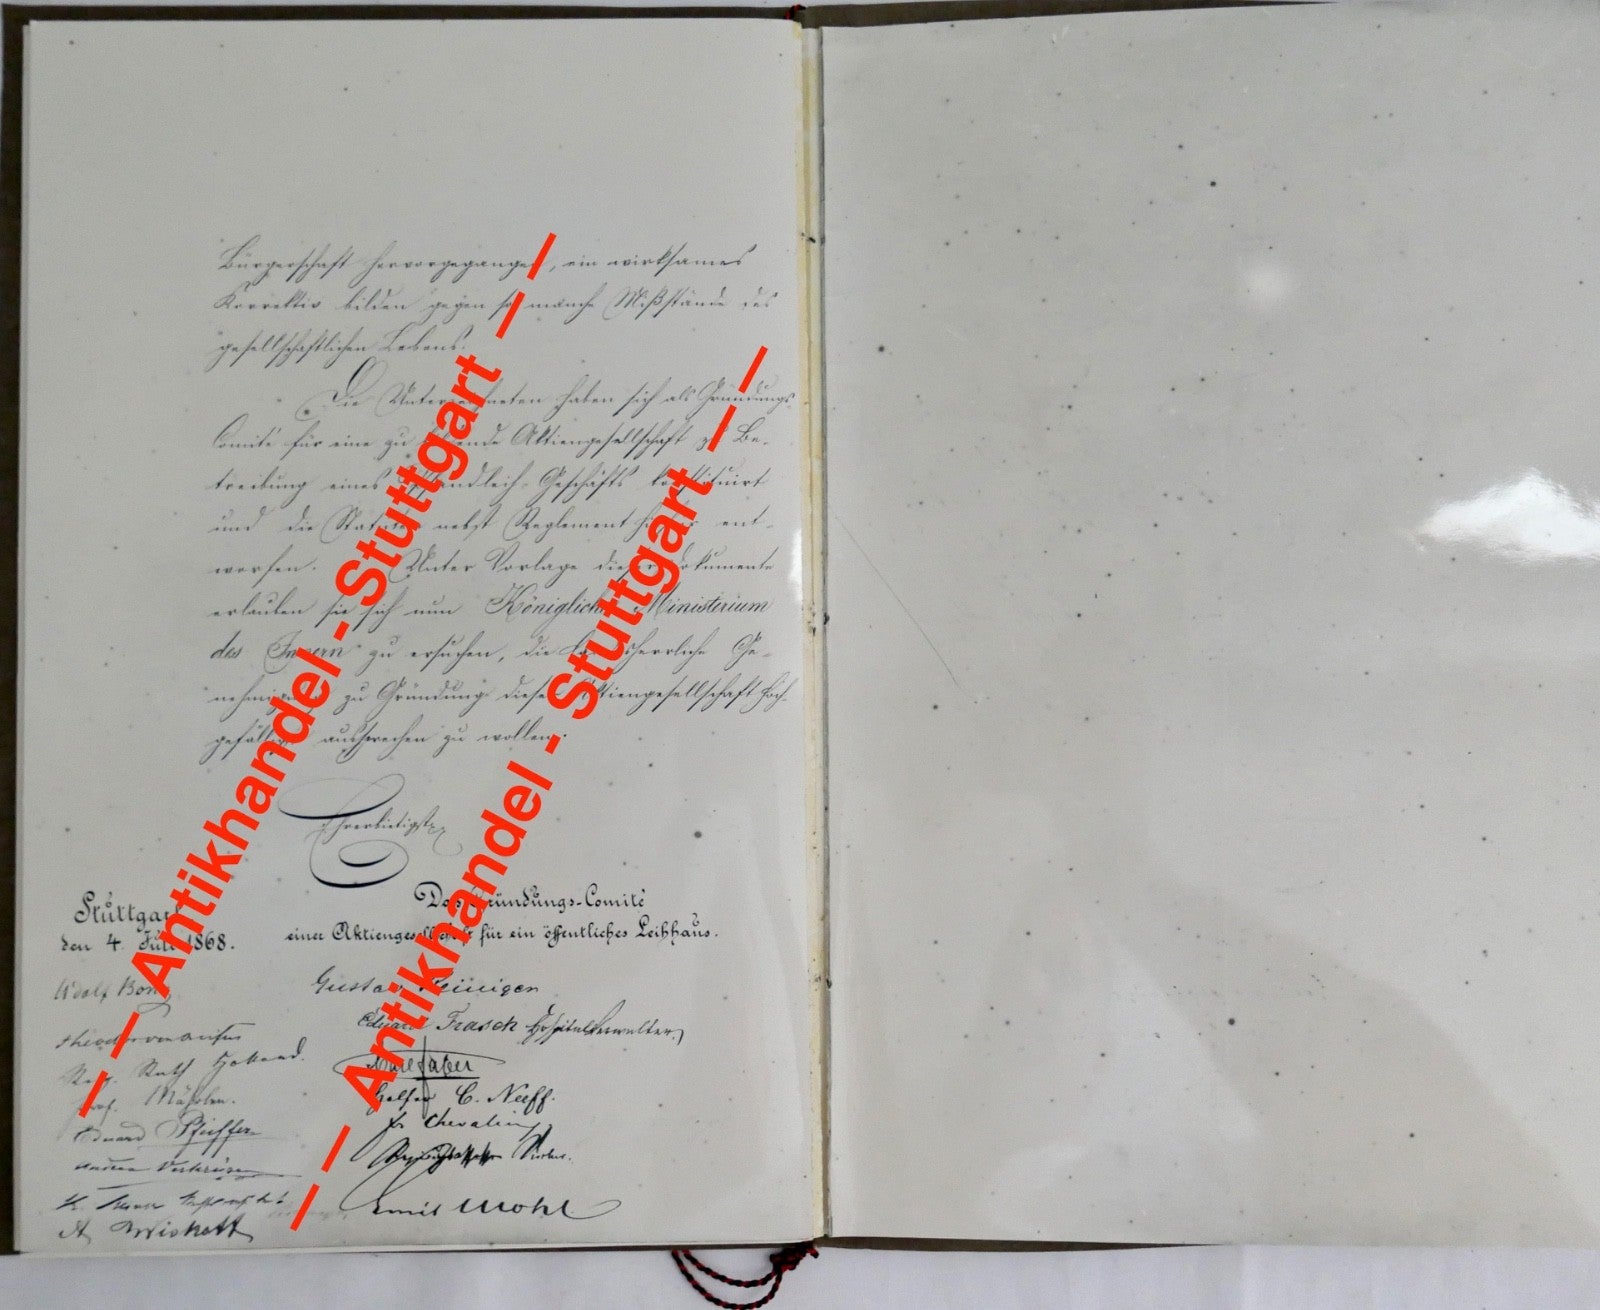 Bürgerschaft hervorgegangen, ein wirksames
Korrektiv bilden gegen so manche Mißstände des
gesellschaftlichen Lebens.
Die Unterzeichneten haben sich als Gründungs-
Comité für eine zu Aktiengesellschaft zu Be-
treibung eines Pfandleih-Geschäfts konstituirt
und die Statuten nebst Reglement hiefür ent-
worfen. Unter Vorlage dieser Dokumente
erlauben sie sich nun Königliches Ministerium
des Innern zu ersuchen, die Landesherrliche Ge-
nehmigung zu Gründung dieser Aktiengesellschaft hoch-
gefälligst aussprechen zu wollen.
Ehrerbietigst
Stuttgart
den 4. Juli 1868.
Das Gründungs-Comité
einer Aktiengesellschaft für ein öffentliches Leihhaus.
Adolf Bonz
Gustav
Eduard Frasch Hospitalverwalter
Reg. Rath
Carl Faber
Prof. Mährlen.
C. Neeff.
Eduard Pfeiffer
Fr Chevalin
Emil Mohl
— Antikhandel - Stuttgart — —
— — Antikhandel - Stuttgart — —